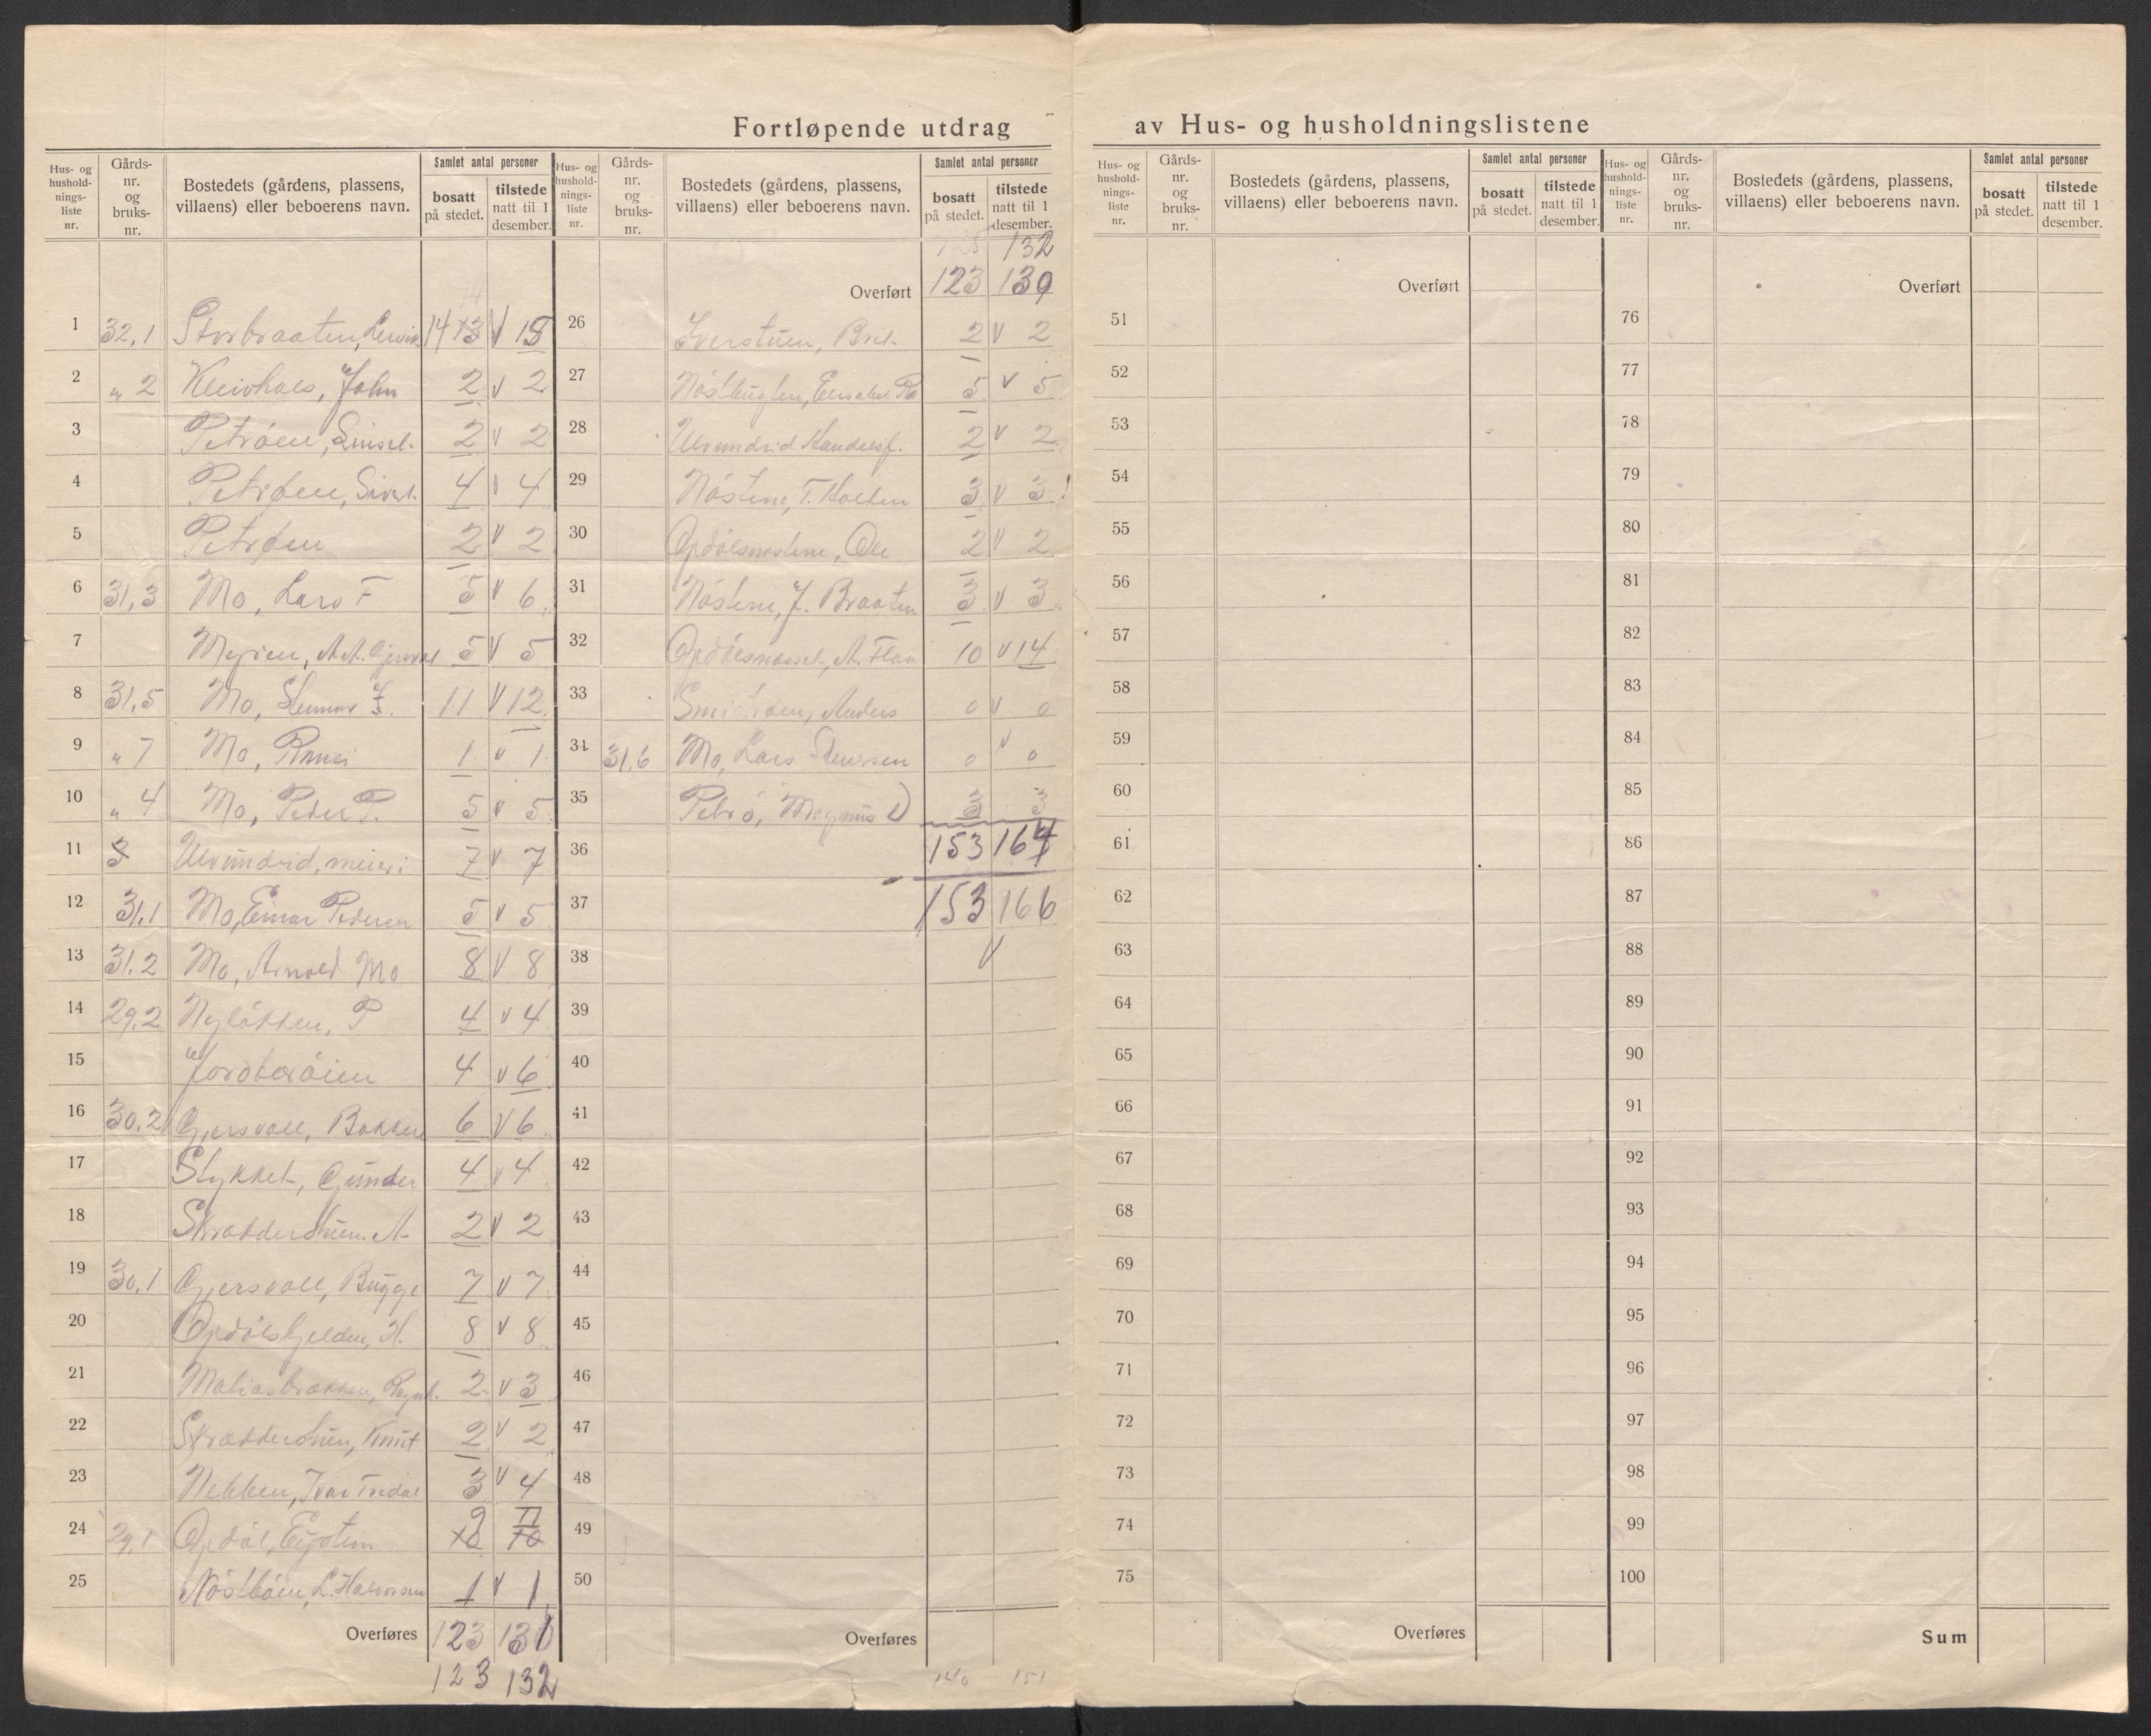 Fortløpende utdrag av Hus- og husholdningslistene
Hus- og hushold-nings-liste nr. | Gårds-nr. og bruks-nr. | Bostedets (gårdens, plassens, villaens) eller beboerens navn. | Samlet antal personer | bosatt på stedet. | tilstede natt til 1 desember.
1 32,1 Storbraaten, 14 13 v 15
2 „ 2 Kleivhals, John 2 v 2
3 Petrøen, 2 v 2
4 Petrøen, Sivert. 4 v 4
5 Petrøen 2 v 2
6 31,3 Mo, Lars F 5 v 6
7 5 v 5
8 31,5 Mo, 11 v 12
9 „ 7 Mo, 1 v 1
10 „ 4 Mo, Peder P. 5 v 5
11 Ulvundeid, meieri 7 v 7
12 31.1 Mo, Einar Pedersen 5 v 5
13 31.2 Mo, Arnold Mo 8 v 8
14 29.2 Nyløkken, P 4 v 4
15 Jordbærøien 4 v 6
16 30.2 Gjersvoll, Bakken 6 v 6
17 Stykket, Gunder 4 v 4
18 Skrædderstuen. A 2 v 2
19 30,1 Gjersvoll, Bugge 7 v 7
20 Opdølstjelden, H. 8 v 8
21 Matiasbrækken, 2 v 3
22 Skrædderstuen, Knut 2 v 2
23 Nebben, Ivar 3 v 4
24 29,1 Opdøl, Eystein 9 11 10
25 Nøstbøen, L. Halvorsen 1 v 1
Overføres 123 131
123 132
Hus- og hushold-nings-liste nr. | Gårds-nr. og bruks-nr. | Bostedets (gårdens, plassens, villaens) eller beboerens navn. | Samlet antal personer | bosatt på stedet. | tilstede natt til 1 desember.
132
Overført 123 130
26 Iverstuen, Brit. 2 v 2
27 5 v 5
28 Ulvundeid Handelsf. 2 v 2
29 Nøstene, T. Holten 3 v 3
30 Opdølsnøstene, Ole 2 v 2
31 Nøstene, J. Braaten 3 v 3
32 Opdølsnosset, A. Flaa 10 v 14
33 Anders 0 v 0
34 31,6 Mo, Lars 0 v 0
35 Petrø, Magnus 3 3
36 153 164
37 153 166
38 v
39
40
41
42
43
44
45
46
47
48
49
50
Overføres
140 151
Hus- og hushold-nings-liste nr. | Gårds-nr. og bruks-nr. | Bostedets (gårdens, plassens, villaens) eller beboerens navn. | Samlet antal personer | bosatt på stedet. | tilstede natt til 1 desember.
Overført
51
52
53
54
55
56
57
58
59
60
61
62
63
64
65
66
67
68
69
70
71
72
73
74
75
Overføres
Hus- og hushold-nings-liste nr. | Gårds-nr. og bruks-nr. | Bostedets (gårdens, plassens, villaens) eller beboerens navn. | Samlet antal personer | bosatt på stedet. | tilstede natt til 1 desember.
Overført
76
77
78
79
80
81
82
83
84
85
86
87
88
89
90
91
92
93
94
95
96
97
98
99
100
Sum